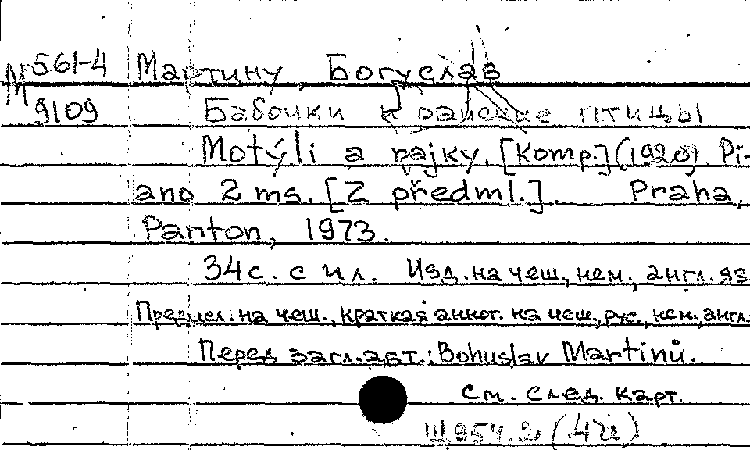 М 561-4 Мартину, Богуслав
9109 Бабочки и райские птицы
Motýli a rajky. [Komp.] (1920). Pi-
ano 2 ms. [Z předml.]. Praha,
Panton, 1973.
34с. с ил. Изд. на чеш., нем., англ. яз
Предисл. на чеш., краткая аннот. на чеш., рус., нем., англ.
Перед загл. авт.: Bohuslav Martinů.
см. след. карт.